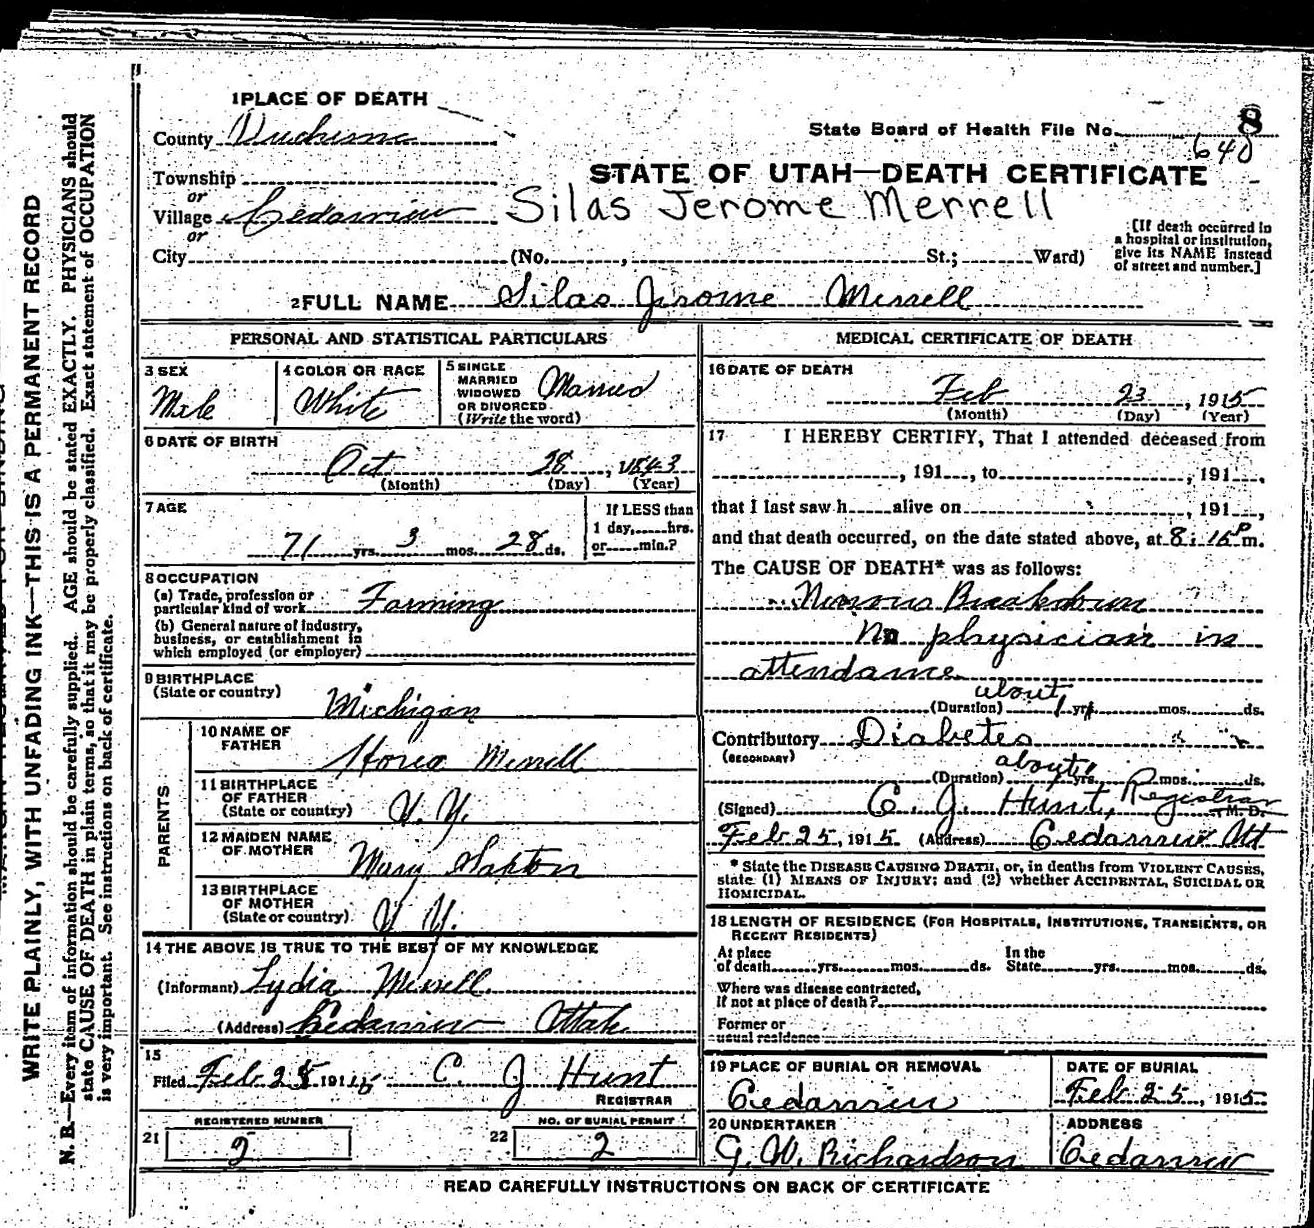 1 PLACE OF DEATH
County Duchesne
State Board of Health File No. 8
640
Township
or
Village Cedarview
or
City (No. , St.; Ward)
STATE OF UTAH—DEATH CERTIFICATE
Silas Jerome Merrell
[If death occurred in
a hospital or institution,
give its NAME instead
of street and number.]
2 FULL NAME Silas Jerome Merrell
PERSONAL AND STATISTICAL PARTICULARS
3 SEX
Male
4 COLOR OR RACE
White
5 SINGLE
MARRIED
WIDOWED
OR DIVORCED
(Write the word)
Married
6 DATE OF BIRTH
Oct 28, 1843
(Month) (Day) (Year)
7 AGE
71 yrs. 3 mos. 28 ds.
If LESS than
1 day, hrs.
or min.?
8 OCCUPATION
(a) Trade, profession or
particular kind of work Farming
(b) General nature of industry,
business, or establishment in
which employed (or employer)
9 BIRTHPLACE
(State or country)
Michigan
PARENTS
10 NAME OF
FATHER
Merrell
11 BIRTHPLACE
OF FATHER
(State or country) N. Y.
12 MAIDEN NAME
OF MOTHER Mary Saxton
13 BIRTHPLACE
OF MOTHER
(State or country) N. Y.
14 THE ABOVE IS TRUE TO THE BEST OF MY KNOWLEDGE
(Informant) Lydia Merrell
(Address) Cedarview Utah
15
Filed Feb 25 1915 C. J Hunt
REGISTRAR
21 REGISTERED NUMBER
2
22 NO. OF BURIAL PERMIT
2
MEDICAL CERTIFICATE OF DEATH
16 DATE OF DEATH
Feb 23, 1915
(Month) (Day) (Year)
17 I HEREBY CERTIFY, That I attended deceased from
, 191 , to , 191 ,
that I last saw h alive on , 191 ,
and that death occurred, on the date stated above, at 8:15 P m.
The CAUSE OF DEATH* was as follows:
Nervous Breakdown
No physician in
attendance
about
(Duration) 1 yr mos. ds.
Contributory Diabetes
(SECONDARY)
about
(Duration) 1 yrs. mos. ds.
(Signed) C. J. Hunt, Registrar M. D.
Feb 25, 1915 (Address) Cedarview Ut
* State the DISEASE CAUSING DEATH, or, in deaths from VIOLENT CAUSES,
state (1) MEANS OF INJURY; and (2) whether ACCIDENTAL, SUICIDAL OR
HOMICIDAL.
18 LENGTH OF RESIDENCE (FOR HOSPITALS, INSTITUTIONS, TRANSIENTS, OR
RECENT RESIDENTS)
At place
of death yrs. mos. ds.
In the
State yrs. mos. ds.
Where was disease contracted,
if not at place of death?
Former or
usual residence
19 PLACE OF BURIAL OR REMOVAL
Cedarview
DATE OF BURIAL
Feb 25, 1915
20 UNDERTAKER
G. W. Richardson
ADDRESS
Cedarview
READ CAREFULLY INSTRUCTIONS ON BACK OF CERTIFICATE
WRITE PLAINLY, WITH UNFADING INK—THIS IS A PERMANENT RECORD
N. B.—Every item of information should be carefully supplied. AGE should be stated EXACTLY. PHYSICIANS should
state CAUSE OF DEATH in plain terms, so that it may be properly classified. Exact statement of OCCUPATION
is very important. See instructions on back of certificate.